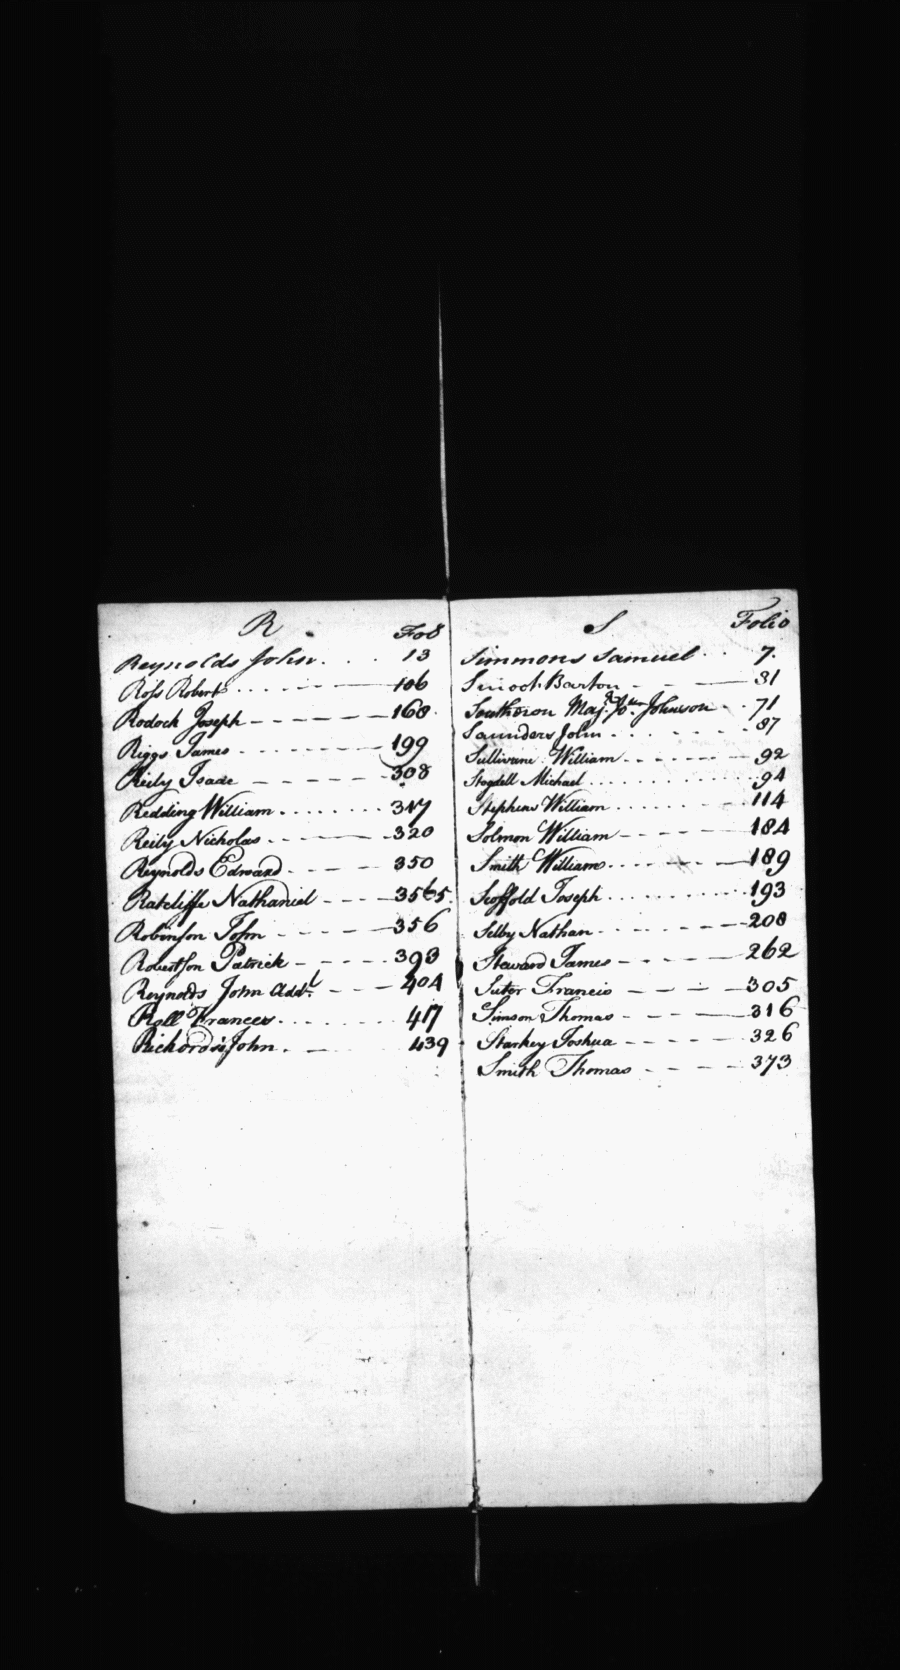 R Fol
Reynolds John 13
Ross Robert 106
Rodock Joseph 168
Riggs James 199
Reily Isaac 308
Redding William 317
Reily Nicholas 320
Reynolds Edward 350
Ratcliffe Nathaniel
Robinson John 356
Robertson Patrick 393
Reynolds John Addl. 404
Roll Frances 417
Richards John 439
S Folio
Simmons Samuel 7
Barton 31
Southeron Maj. Johnson 71
Saunders John 87
Sullivane William 92
Stogdell Michael 94
Stephens William 114
Solmon William 184
Smith William 189
Scoffold Joseph 193
Selby Nathan 208
Steward James 262
Sutor Francis 305
Simson Thomas 316
Starkey Joshua 326
Smith Thomas 373